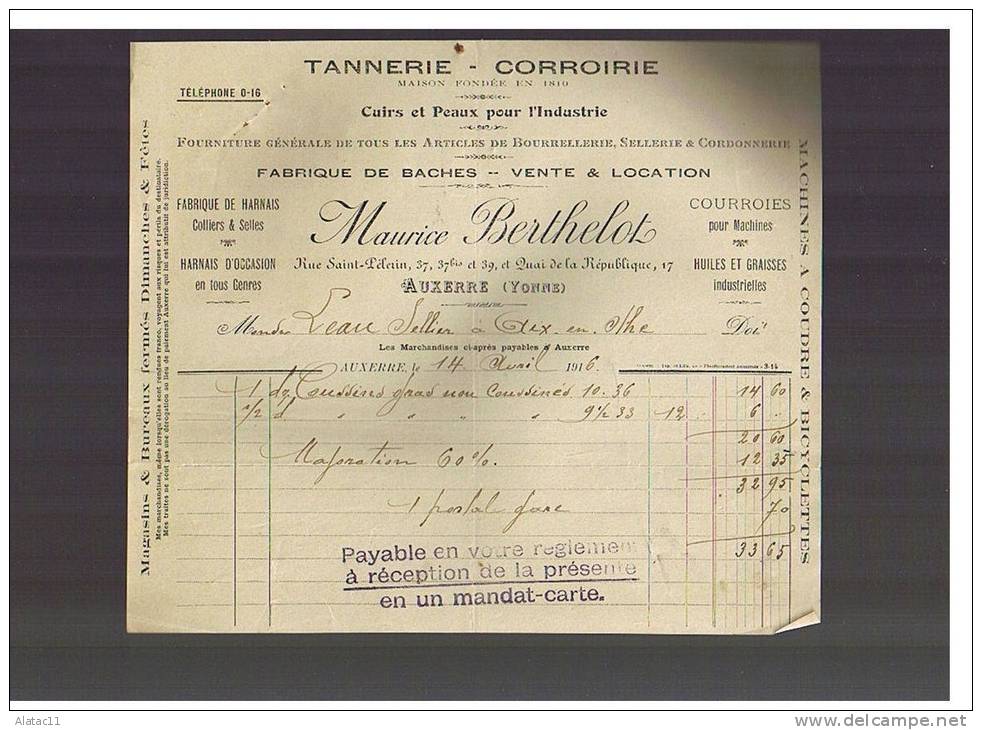 TANNERIE - CORROIRIE
MAISON FONDÉE EN 1810
TÉLÉPHONE 0-16
Cuirs et Peaux pour l'Industrie
FOURNITURE GÉNÉRALE DE TOUS LES ARTICLES DE BOURRELLERIE, SELLERIE & CORDONNERIE
FABRIQUE DE BACHES -- VENTE & LOCATION
FABRIQUE DE HARNAIS
Colliers & Selles
HARNAIS D'OCCASION
en tous Genres
Maurice Berthelot
Rue Saint-Pèlerin, 37, 37bis et 39, et Quai de la République, 17
AUXERRE (YONNE)
COURROIES
pour Machines
HUILES ET GRAISSES
industrielles
Magasins & Bureaux fermés Dimanches & Fêtes
Mes marchandises, même lorsqu'elles sont rendues franco, voyagent aux risques et périls du destinataire.
Mes traites ne sont pas une dérogation au lieu de paiement Auxerre qui lui est attributif de juridiction.
MACHINES A COUDRE & BICYCLETTES
Leau Sellier à Aix en Othe Doit
Les Marchandises ci-après payables à Auxerre
AUXERRE, le 14 Avril 1916
1 dz Coussins gras non coussinés 10.36 14 60
1/2 d " " " " 9 1/2 33 12 .. 6 ..
20 60
Majoration 60%. 12 35
32 95
1 postal gare 70
33 65
Payable en votre reglement
à réception de la présente
en un mandat-carte.
Alatac11
www.delcampe.net